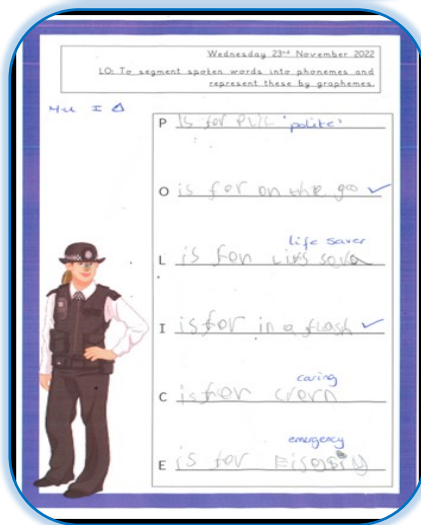 Wednesday 23rd November 2022
LO: To segment spoken words into phonemes and
represent these by graphemes.
I
P is for 'polite'
O is for on the go ✓
life saver
L is for
I is for in a flash ✓
caring
C is for
emergency
E is for